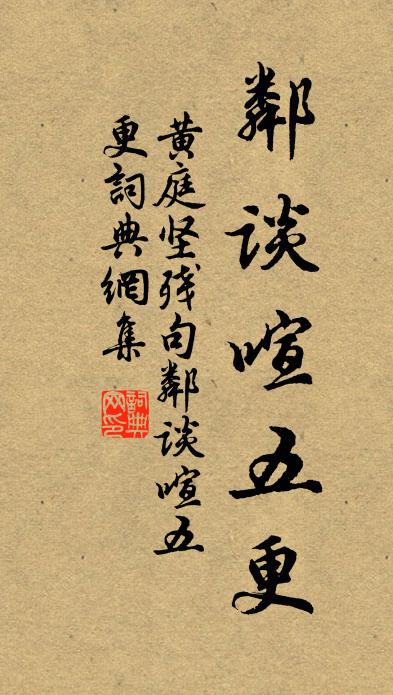 鄰谈喧五更
黄庭坚残句鄰谈喧五
更詞典網集
詞典网印